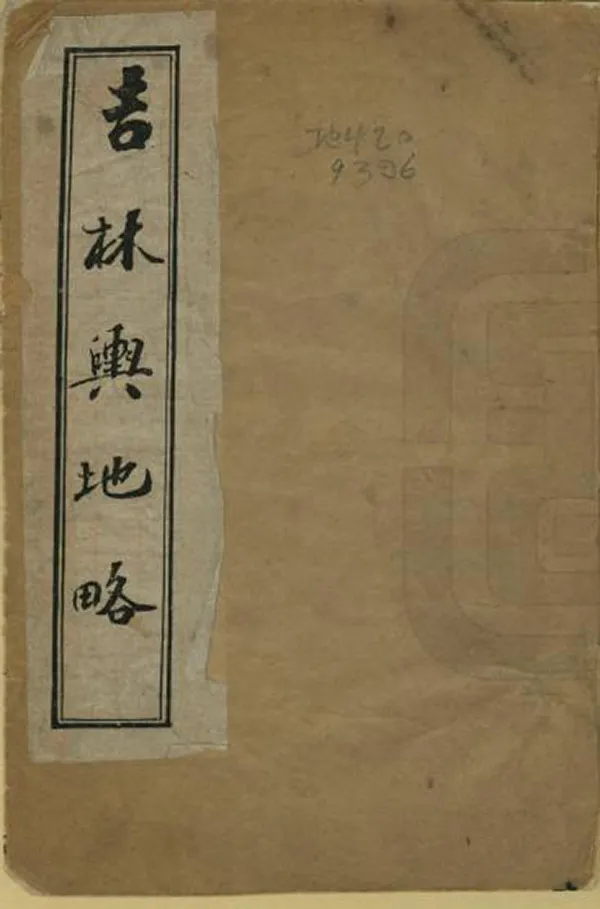 吉林輿地略
地420
9306